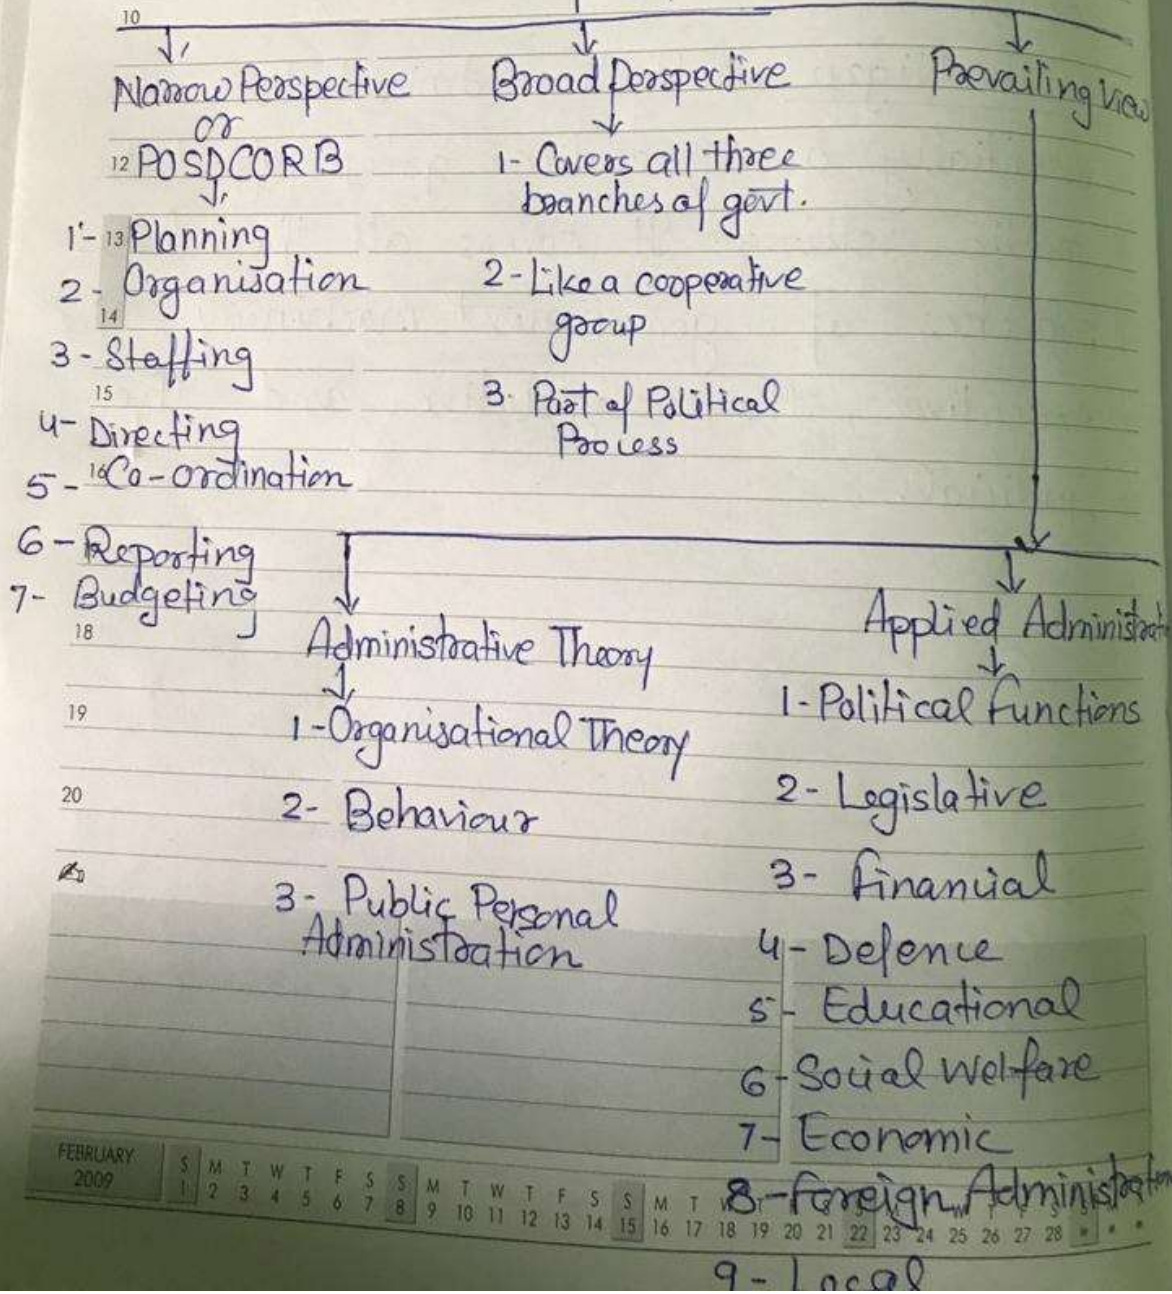 10
Narrow Perspective
or
12 POSDCORB
1- 13 Planning
2- Organisation
14
3- Staffing
15
4- Directing
5- 16 Co-ordination
6- Reporting
7- Budgeting
18
19
20
Broad Perspective
1- Covers all three
branches of govt.
2- Like a cooperative
group
3. Part of Political
Process
Prevailing View
Administrative Theory
1- Organisational Theory
2- Behaviour
3- Public Personal
Administration
Applied
1- Political Functions
2- Legislative
3- Financial
4- Defence
5- Educational
6- Social Welfare
7- Economic
8- Foreign Administration
9- Local
FEBRUARY
2009
S M T W T F S S M T W T F S S M T
1 2 3 4 5 6 7 8 9 10 11 12 13 14 15 16 17 18 19 20 21 22 23 24 25 26 27 28